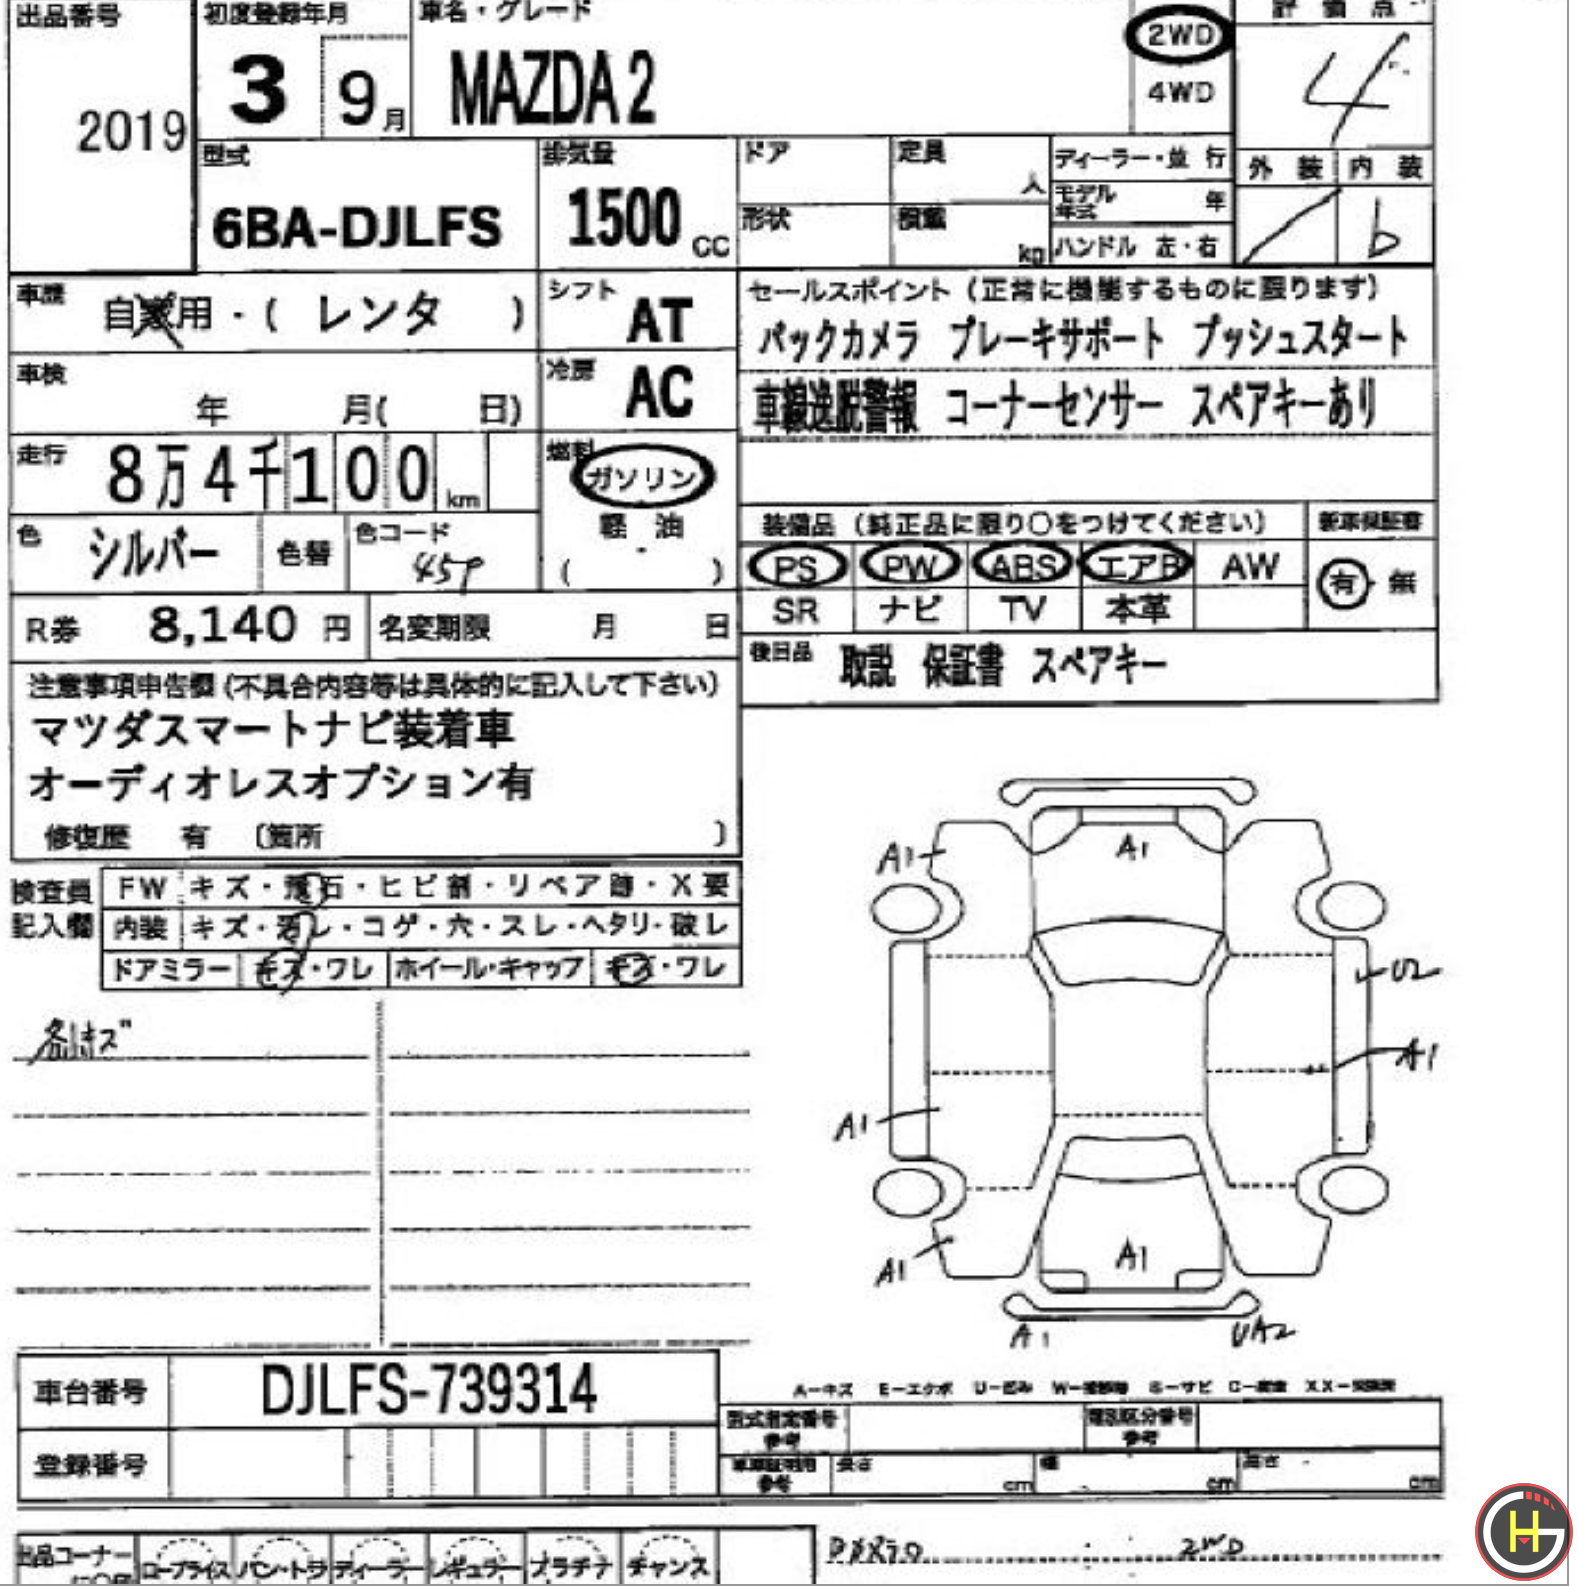 出品番号
2019
初度登録年月
3 9月
車名・グレード
MAZDA 2
2WD
4WD
評価点
4
外装 内装
b
型式
6BA-DJLFS
排気量
1500 cc
ドア
定員
人
形状
積載
kg
ディーラー・並行
モデル年式 年
ハンドル 左・右
車歴
自家用・( レンタ )
シフト
AT
車検
年 月( 日)
冷房
AC
走行
8万4千100 km
燃料
ガソリン
軽油
( )
色
シルバー
色替
色コード
45P
R券 8,140 円
名変期限 月 日
セールスポイント (正常に機能するものに限ります)
バックカメラ ブレーキサポート プッシュスタート
車線逸脱警報 コーナーセンサー スペアキーあり
装備品 (純正品に限り○をつけてください)
新車保証書
PS PW ABS エアB AW
有・無
SR ナビ TV 本革
後日品 取説 保証書 スペアキー
注意事項申告欄 (不具合内容等は具体的に記入して下さい)
マツダスマートナビ装着車
オーディオレスオプション有
修復歴 有 (箇所 )
検査員
記入欄
FW キズ・飛石・ヒビ割・リペア跡・X要
内装 キズ・汚レ・コゲ・穴・スレ・ヘタリ・破レ
ドアミラー キズ・ワレ ホイール・キャップ キズ・ワレ
キズ
A1
A1
U2
A1
A1
A1
A1
A1
UA2
車台番号 DJLFS-739314
登録番号
A-キズ E-エクボ U-凹み S-サビ
型式指定番号
参考
類別区分番号
参考
参考
長さ cm
幅 cm
高さ cm
出品コーナー
ロープライス バン・トラ ディーラー レギュラー プラチナ チャンス
2WD